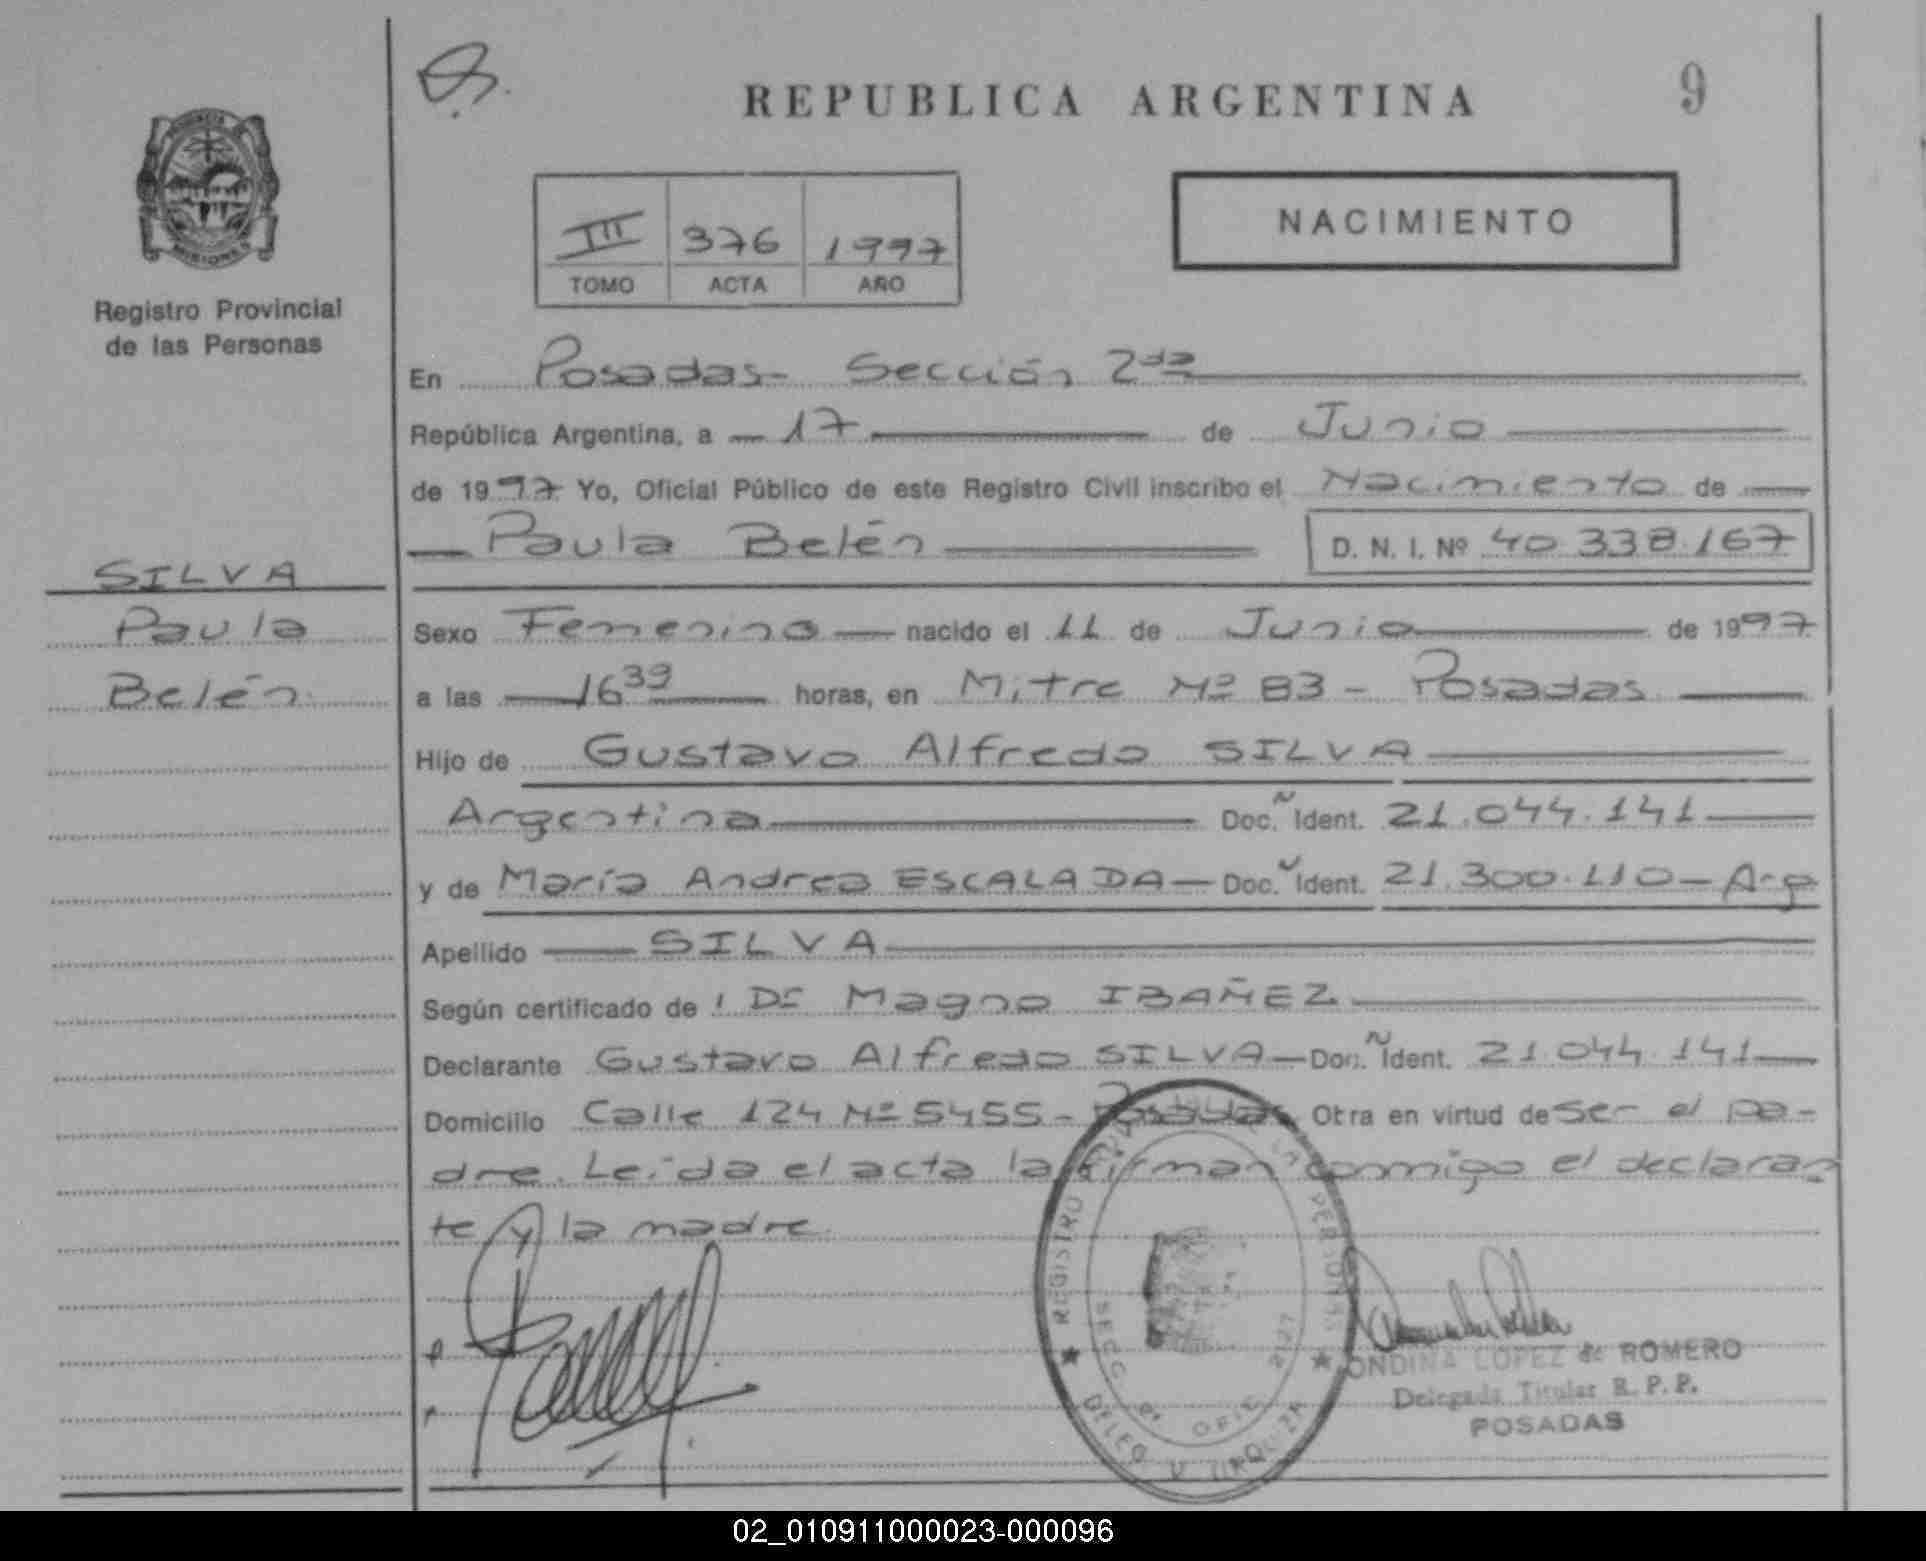 REPUBLICA ARGENTINA
9
PROVINCIA DE
MISIONES
Registro Provincial
de las Personas
III 376 1997
TOMO ACTA AÑO
NACIMIENTO
En Posadas- Sección 2da
República Argentina, a 17 de Junio
de 1997 Yo, Oficial Público de este Registro Civil inscribo el Nacimiento de
Paula Belén D. N. I. Nº 40.338.167
SILVA
Paula
Belén
Sexo Femenino nacido el 11 de Junio de 1997
a las 16 39 horas, en Mitre Nº 83 - Posadas
Hijo de Gustavo Alfredo SILVA
Argentina Doc. Ident. 21.044.141
y de María Andrea ESCALADA - Doc. Ident. 21.300.110 - Arg
Apellido SILVA
Según certificado de Dr Magno IBAÑEZ
Declarante Gustavo Alfredo SILVA - Doc. Ident. 21.044.141
Domicilio Calle 124 Nº 5455 - Posadas Otra en virtud de ser el pa-
dre. Leída el acta la firman conmigo el declaran
te y la madre.
REGISTRO PROVINCIAL DE LAS PERSONAS
SECC 2ª OFIC 2127
DELEG V URQUIZA
ONDINA LOPEZ de ROMERO
Delegada Titular R. P. P.
POSADAS
02_010911000023-000096